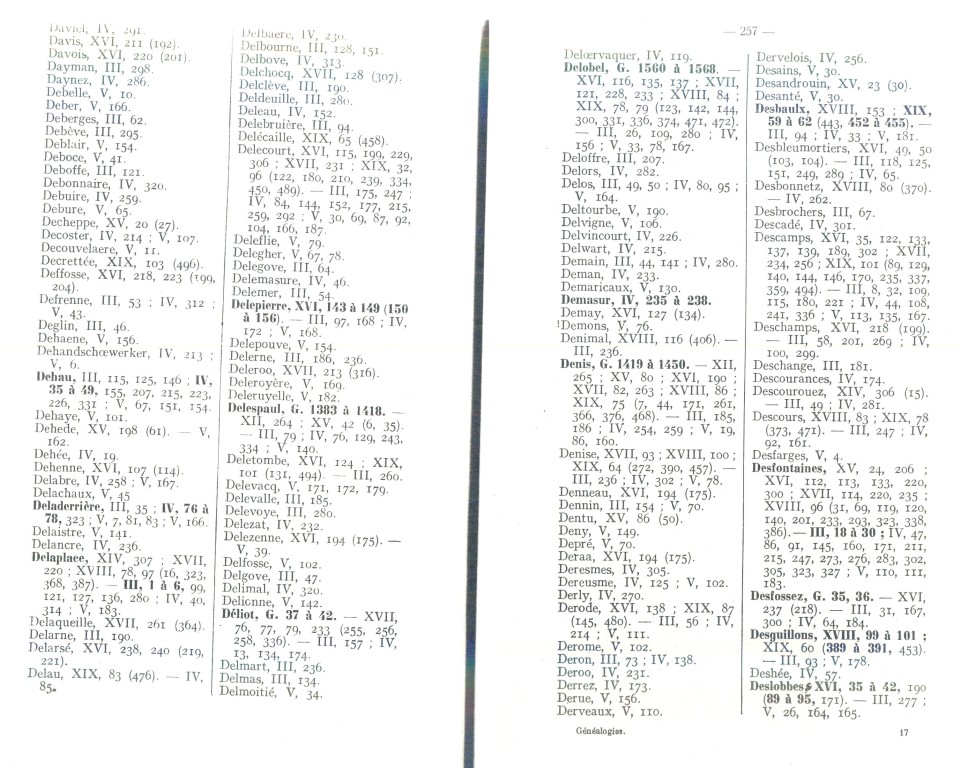 Daviel, IV, 291.
Davis, XVI, 211 (192).
Davois, XVI, 220 (201).
Dayman, III, 298.
Daynez, IV, 286.
Debelle, V, 10.
Deber, V, 166.
Deberges, III, 62.
Debève, III, 295.
Deblair, V, 154.
Deboce, V, 41.
Deboffe, III, 121.
Debonnaire, IV, 320.
Debuire, IV, 259.
Debure, V, 65.
Decheppe, XV, 20 (27).
Decoster, IV, 214 ; V, 107.
Decouvelaere, V, 11.
Decrettée, XIX, 103 (496).
Deffosse, XVI, 218, 223 (199,
204).
Defrenne, III, 53 ; IV, 312 ;
V, 43.
Deglin, III, 46.
Dehaene, V, 156.
Dehandschœwerker, IV, 213 ;
V, 6.
Dehau, III, 115, 125, 146 ; IV,
35 à 49, 155, 207, 215, 223,
226, 331 ; V, 67, 151, 154.
Dehaye, V, 101.
Dehede, XV, 198 (61). — V,
162.
Dehée, IV, 19.
Dehenne, XVI, 107 (114).
Delabre, IV, 258 ; V, 167.
Delachaux, V, 45
Deladerrière, III, 35 ; IV, 76 à
78, 323 ; V, 7, 81, 83 ; V, 166.
Delaistre, V, 141.
Delancre, IV, 236.
Delaplace, XIV, 307 ; XVII,
220 ; XVIII, 78, 97 (16, 323,
368, 387). — III, 1 à 6, 99,
121, 127, 136, 280 ; IV, 40,
314 ; V, 183.
Delaqueille, XVII, 261 (364).
Delarne, III, 190.
Delarsé, XVI, 238, 240 (219,
221).
Delau, XIX, 83 (476). — IV,
85.
Delbaere, IV, 230.
Delbourne, III, 128, 151.
Delbove, IV, 313.
Delchocq, XVII, 128 (307).
Delclève, III, 190.
Deldeuille, III, 280.
Deleau, IV, 152.
Delebruière, III, 94.
Delécaille, XIX, 65 (458).
Delecourt, XVI, 115, 199, 229,
306 ; XVII, 231 ; XIX, 32,
96 (122, 180, 210, 239, 334,
450, 489). — III, 175, 247 ;
IV, 84, 144, 152, 177, 215,
259, 292 ; V, 30, 69, 87, 92,
104, 166, 187.
Deleflie, V, 79.
Delegher, V, 67, 78.
Delegove, III, 64.
Delemasure, IV, 46.
Delemer, III, 54.
Delepierre, XVI, 143 à 149 (150
à 156). — III, 97, 168 ; IV,
172 ; V, 168.
Delepouve, V, 154.
Delerne, III, 186, 236.
Deleroo, XVII, 213 (316).
Deleroyère, V, 169.
Deleruyelle, V, 182.
Delespaul, G. 1383 à 1418. —
XII, 264 ; XV, 42 (6, 35).
— III, 79 ; IV, 76, 129, 243,
334 ; V, 140.
Deletombe, XVI, 124 ; XIX,
101 (131, 494). — III, 260.
Delevacq, V, 171, 172, 179.
Delevalle, III, 185.
Delevoye, III, 280.
Delezat, IV, 232.
Delezenne, XVI, 194 (175). —
V, 39.
Delfosse, V, 102.
Delgove, III, 47.
Delimal, IV, 320.
Delionne, V, 142.
Déliot, G. 37 à 42. — XVII,
76, 77, 79, 233 (255, 256,
258, 336). — III, 157 ; IV,
13, 134, 174.
Delmart, III, 236.
Delmas, III, 134.
Delmoitié, V, 34.
— 257 —
Delœrvaquer, IV, 119.
Delobel, G. 1560 à 1568. —
XVI, 116, 135, 137 ; XVII,
121, 228, 233 ; XVIII, 84 ;
XIX, 78, 79 (123, 142, 144,
300, 331, 336, 374, 471, 472).
— III, 26, 109, 280 ; IV,
156 ; V, 33, 78, 167.
Deloffre, III, 207.
Delors, IV, 282.
Delos, III, 49, 50 ; IV, 80, 95 ;
V, 164.
Deltourbe, V, 190.
Delvigne, V, 106.
Delvincourt, IV, 226.
Delwart, IV, 215.
Demain, III, 44, 141 ; IV, 280.
Deman, IV, 233.
Demaricaux, V, 130.
Demasur, IV, 235 à 238.
Demay, XVI, 127 (134).
Demons, V, 76.
Denimal, XVIII, 116 (406). —
III, 236.
Denis, G. 1419 à 1450. — XII,
265 ; XV, 80 ; XVI, 190 ;
XVII, 82, 263 ; XVIII, 86 ;
XIX, 75 (7, 44, 171, 261,
366, 376, 468). — III, 185,
186 ; IV, 254, 259 ; V, 19,
86, 160.
Denise, XVII, 93 ; XVIII, 100 ;
XIX, 64 (272, 390, 457). —
III, 236 ; IV, 302 ; V, 78.
Denneau, XVI, 194 (175).
Dennin, III, 154 ; V, 70.
Dentu, XV, 86 (50).
Deny, V, 149.
Depré, V, 70.
Deraa, XVI, 194 (175).
Deresmes, IV, 305.
Dereusme, IV, 125 ; V, 102.
Derly, IV, 270.
Derode, XVI, 138 ; XIX, 87
(145, 480). — III, 56 ; IV,
214 ; V, 111.
Derome, V, 102.
Deron, III, 73 ; IV, 138.
Deroo, IV, 231.
Derrez, IV, 173.
Derue, V, 156.
Derveaux, V, 110.
Dervelois, IV, 256.
Desains, V, 30.
Desandrouin, XV, 23 (30).
Desanté, V, 30.
Desbaulx, XVIII, 153 ; XIX,
59 à 62 (443, 452 à 455). —
III, 94 ; IV, 33 ; V, 181.
Desbleumortiers, XVI, 49, 50
(103, 104). — III, 118, 125,
151, 249, 289 ; IV, 65.
Desbonnetz, XVIII, 80 (370).
— IV, 262.
Desbrochers, III, 67.
Descadé, IV, 301.
Descamps, XVI, 35, 122, 133,
137, 139, 189, 302 ; XVII,
234, 256 ; XIX, 101 (89, 129,
140, 144, 146, 170, 235, 337,
359, 494). — III, 8, 32, 109,
115, 180, 221 ; IV, 44, 108,
241, 336 ; V, 113, 135, 167.
Deschamps, XVI, 218 (199).
— III, 58, 201, 269 ; IV,
100, 299.
Deschange, III, 181.
Descourances, IV, 174.
Descourouez, XIV, 306 (15).
— III, 49 ; IV, 281.
Descours, XVIII, 83 ; XIX, 78
(373, 471). — III, 247 ; IV,
92, 161.
Desfarges, V, 4.
Desfontaines, XV, 24, 206 ;
XVI, 112, 113, 133, 220,
300 ; XVII, 114, 220, 235 ;
XVIII, 96 (31, 69, 119, 120,
140, 201, 233, 293, 323, 338,
386). — III, 18 à 30 ; IV, 47,
86, 91, 145, 160, 171, 211,
215, 247, 273, 276, 283, 302,
305, 323, 327 ; V, 110, 111,
183.
Desfossez, G. 35, 36. — XVI,
237 (218). — III, 31, 167,
300 ; IV, 64, 184.
Desguillons, XVIII, 99 à 101 ;
XIX, 60 (389 à 391, 453).
— III, 93 ; V, 178.
Deshée, IV, 57.
Deslobbes, XVI, 35 à 42, 190
(89 à 95, 171). — III, 277 ;
V, 26, 164, 165.
Généalogies. 17